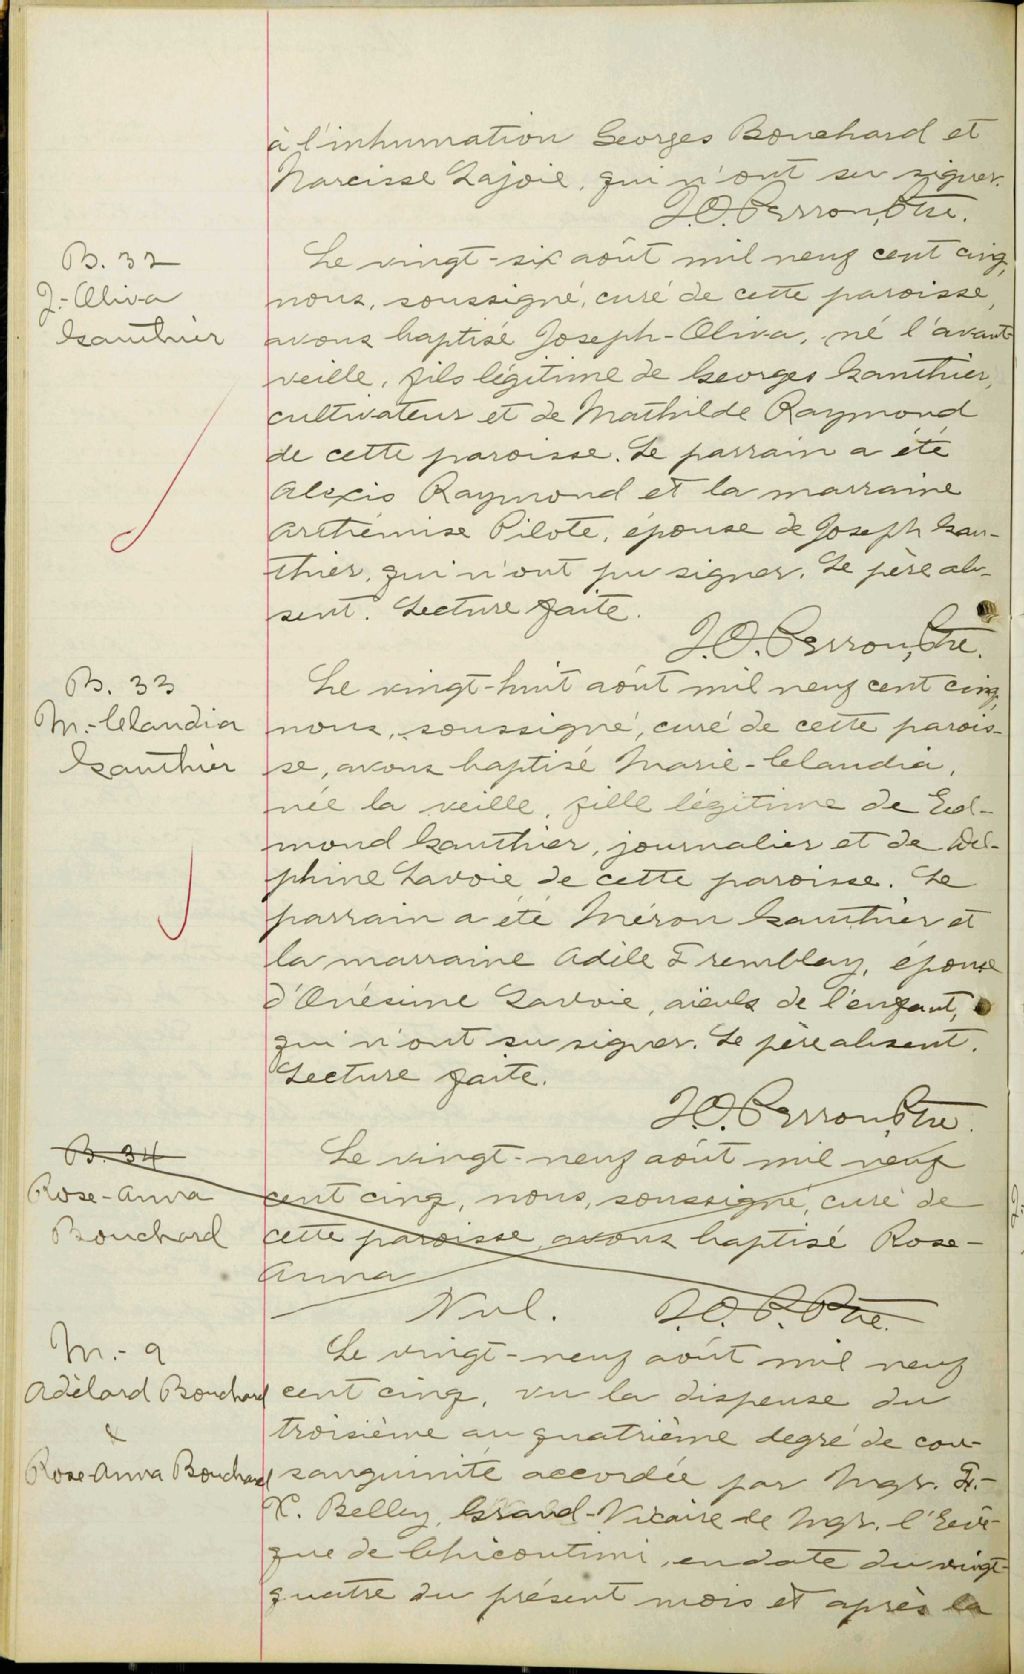 à l'inhumation Georges Bouchard et
Narcisse Lajoie, qui n'ont su signer.
J.O. Perron, Ptre.
B. 32
J.-Oliva
Gauthier
Le vingt-six août mil neuf cent cinq,
nous, soussigné, curé de cette paroisse,
avons baptisé Joseph-Oliva, né l'avant-
veille, fils légitime de Georges Gauthier,
cultivateur et de Mathilde Raymond
de cette paroisse. Le parrain a été
Alexis Raymond et la marraine
Arthémise Pilote, épouse de Joseph Gau-
thier, qui n'ont pu signer. Le père ab-
sent. Lecture faite.
J.O. Perron, Ptre.
B. 33
M.-Clandia
Gauthier
Le vingt-huit août mil neuf cent cinq,
nous, soussigné, curé de cette parois-
se, avons baptisé Marie-Clandia,
née la veille, fille légitime de Ed-
mond Gauthier, journalier et de Del-
phine Savoie de cette paroisse. Le
parrain a été Méron Gauthier et
la marraine Adèle Tremblay, épouse
d'Onésime Savoie, aïeuls de l'enfant,
qui n'ont su signer. Le père absent.
Lecture faite.
J.O. Perron, Ptre.
B. 34
Rose-Anna
Bouchard
Le vingt-neuf août mil neuf
cent cinq, nous, soussigné, curé de
cette paroisse avons baptisé Rose-
Anna
Nul. J.O.P. Ptre.
M.- 9
Adélard Bouchard
&
Rose-Anna Bouchard
Le vingt-neuf août mil neuf
cent cinq, vu la dispense du
troisième au quatrième degré de con-
sanguinité accordée par Mgr. F.-
X. Belley, Grand-Vicaire de Mgr. l'Evê-
que de Chicoutimi, en date du vingt-
quatre du présent mois et après la